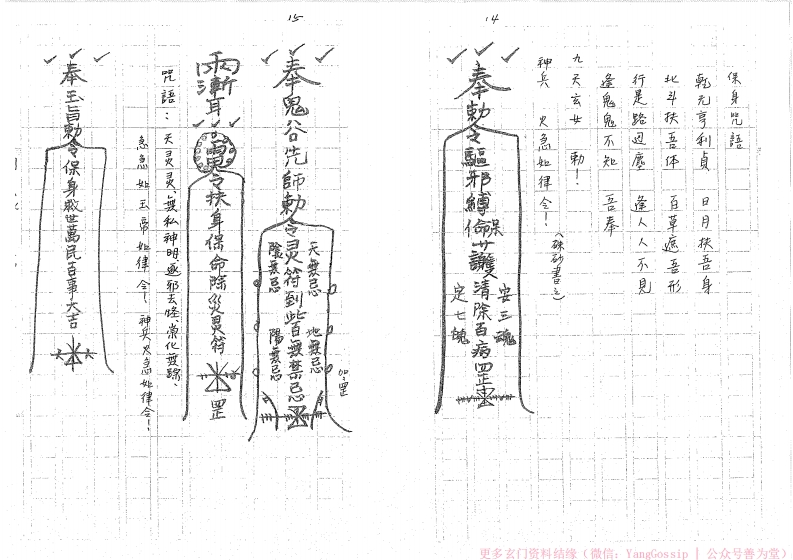 14
保身咒語
乾元亨利貞 日月扶吾身
北斗扶吾体 百草遮吾形
行是路边塵 逢人人不見
逢鬼鬼不知 吾奉
九天玄女 勅!
神兵 火急如律令!
(硃砂書之)
奉勅令驅邪縛 保命護 清除百病罡
安三魂
定七魄
15
奉鬼谷先師勅令灵符到此百無禁忌
天無忌 地無忌
陰無忌 陽無忌
罡
令扶身保命除災灵符
罡
咒語:天灵灵、無私神明逐邪去怪、常化無踪、
急急如玉帝如律令!神兵火急如律令!
奉玉旨勅令保身救世萬民吉事大吉
更多玄门资料结缘(微信:YangGossip | 公众号善为堂)